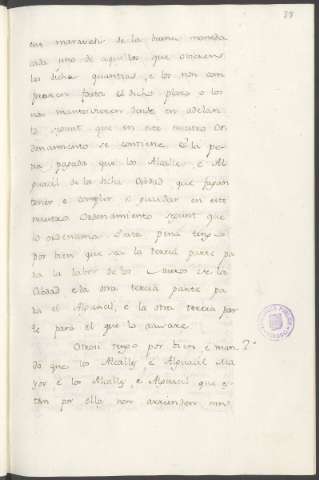 38
ent maravedi de la buena moneda
cada uno de aquellos que ovieren
la dicha quantia, e los non com
praren fasta el dicho plaso o los
non mantovieren dende en adelan
te segunt que en este nuestro Or
denamiento se contiene. E la pe
na pagada que los Alcalles e Al
guacil de la dicha Cibdad que fagan
tener e complir e guardar en este
nuestro Ordenamiento segunt que
lo ordenamos. E esta pena tengo
por bien que sea la tercia parte pa
ra la labor de los Muros de la
Cibdad e la otra tercia parte pa
ra el Alguacil, e la otra tercia par
te para el que lo acusare.
Otrosi tengo por bien e man
do que los Alcalles e Alguacil Ma
yor e los Alcalles, e Alguacil que es
tan por ellos non arrienden nin